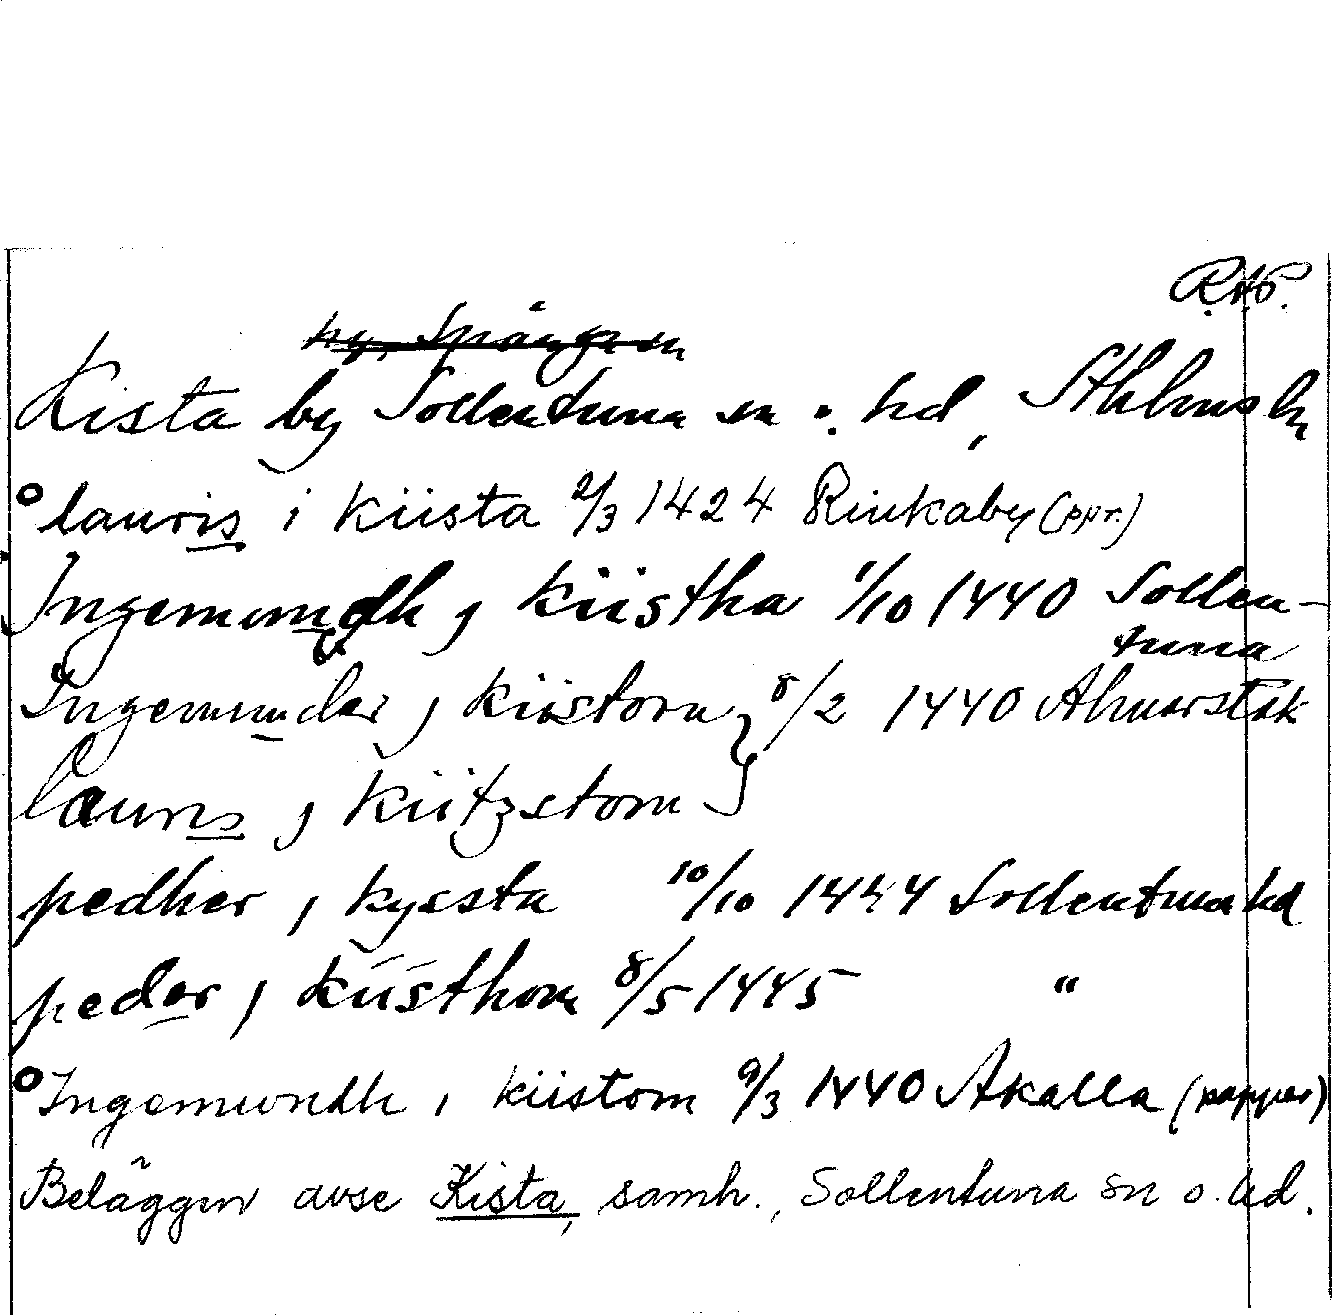 RAP.
Kista by Sollentuna sn o. hd, Sthlms l.
lauris i kiista 2/3 1424 Rinkaby (ppr.)
Ingemundh j kiistha 1/10 1440 Sollen-
tuna
Ingemunder j kiistom } 8/2 1440 Almarstäk
lauris j kiitzstom
pedher j kyssta 10/10 1444 Sollentuna hd
peder j kiisthom 8/5 1445 "
Ingemundh i kiistom 9/3 1440 Akalla (papper)
Beläggen avse Kista, samh., Sollentuna sn o. hd.